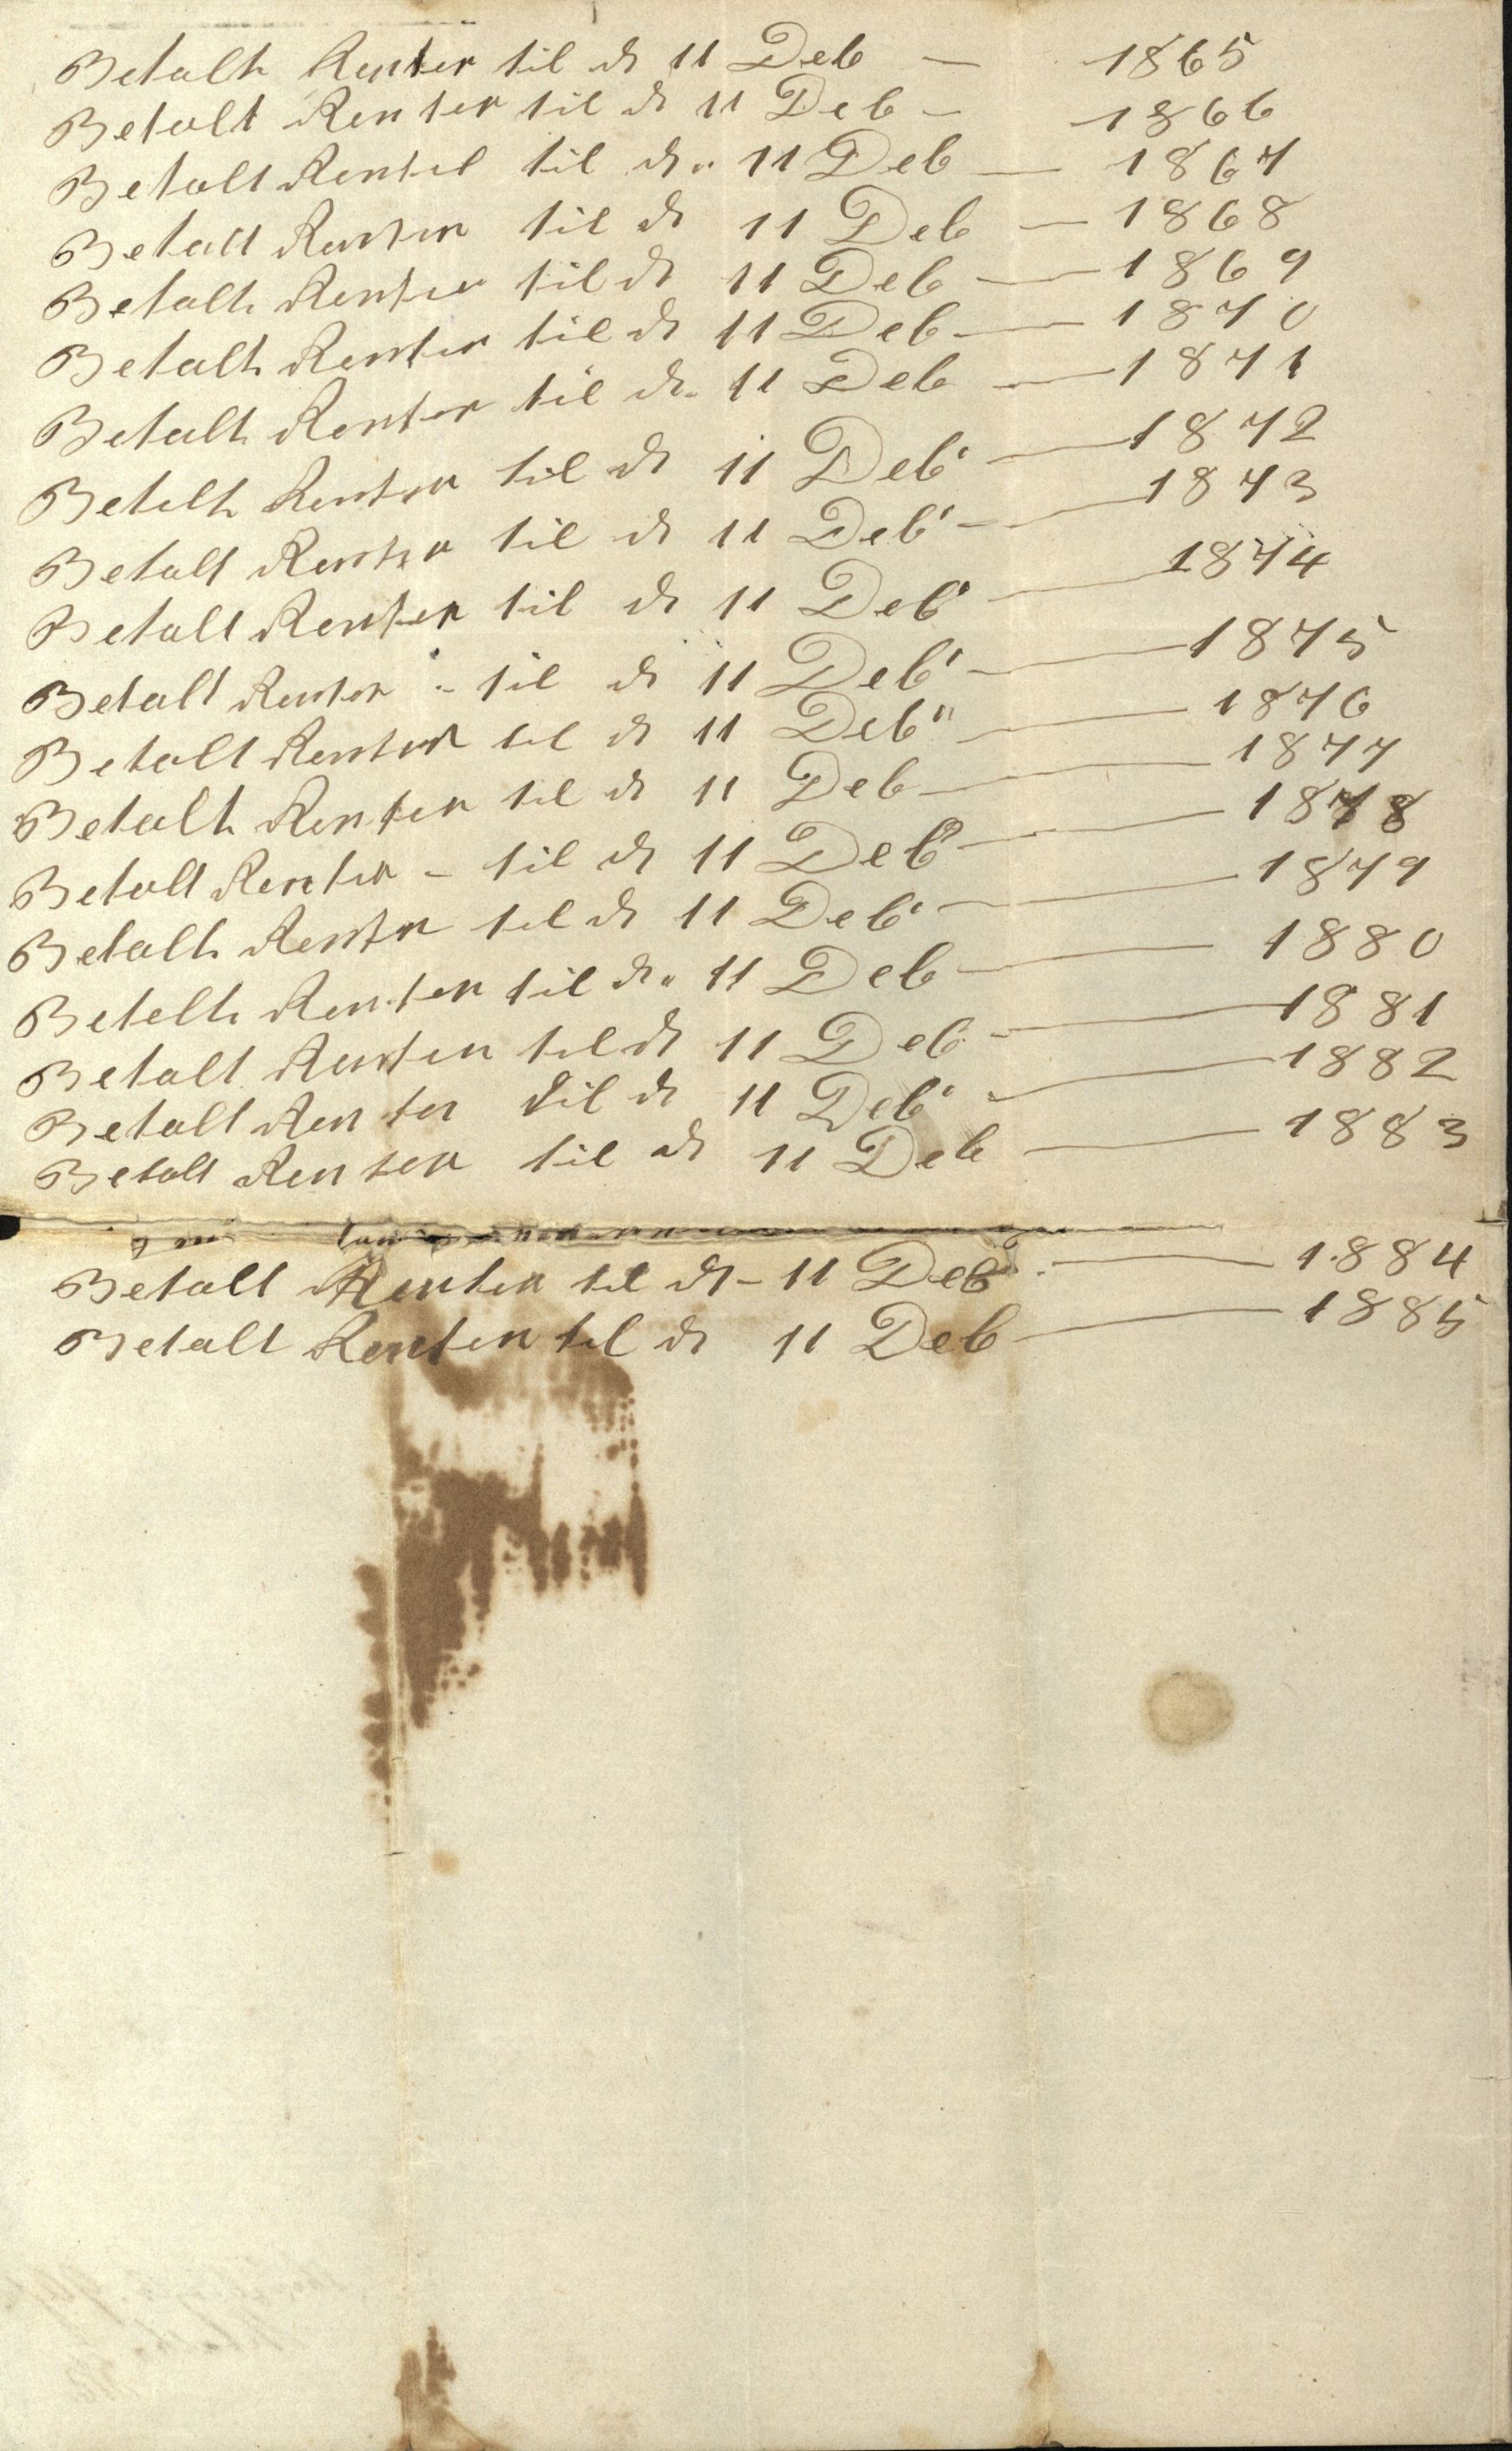 Betalt Renter til d 11 Deb — 1865
Betalt Renter til d 11 Deb — 1866
Betalt Renter til d. 11 Deb — 1867
Betalt Renter til d 11 Deb — 1868
Betalt Renter til d 11 Deb — 1869
Betalt Renter til d 11 Deb — 1870
Betalt Renter til d. 11 Deb — 1871
Betalt Renter til d 11 Deb — 1872
Betalt Renter til d 11 Deb — 1873
Betalt Renter til d 11 Deb — 1874
Betalt Renter - til d 11 Deb — 1875
Betalt Renter til d 11 Deb — 1876
Betalt Renter til d 11 Deb — 1877
Betalt Renter - til d 11 Deb — 1878
Betalt Renter til d 11 Deb — 1879
Betalt Renter til d. 11 Deb — 1880
Betalt Renter til d 11 Deb — 1881
Betalt Renter til d 11 Deb — 1882
Betalt Renter til d 11 Deb — 1883
Betalt Renter til d - 11 Deb — 1884
Betalt Renter til d 11 Deb — 1885